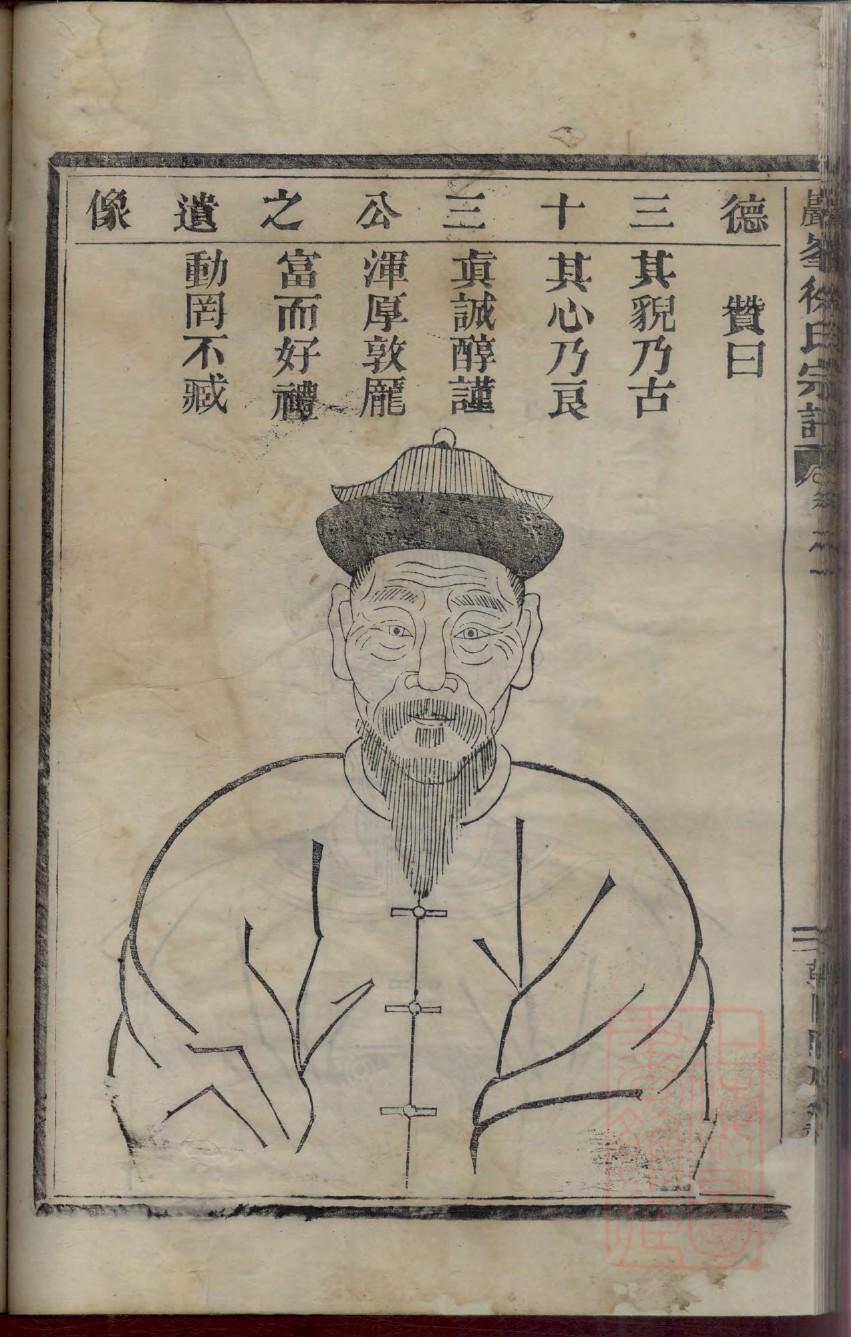 德三十三公之遺像
贊曰
其貌乃古
其心乃良
眞誠醇謹
渾厚敦龎
富而好禮
動罔不臧
巖峯徐氏宗譜